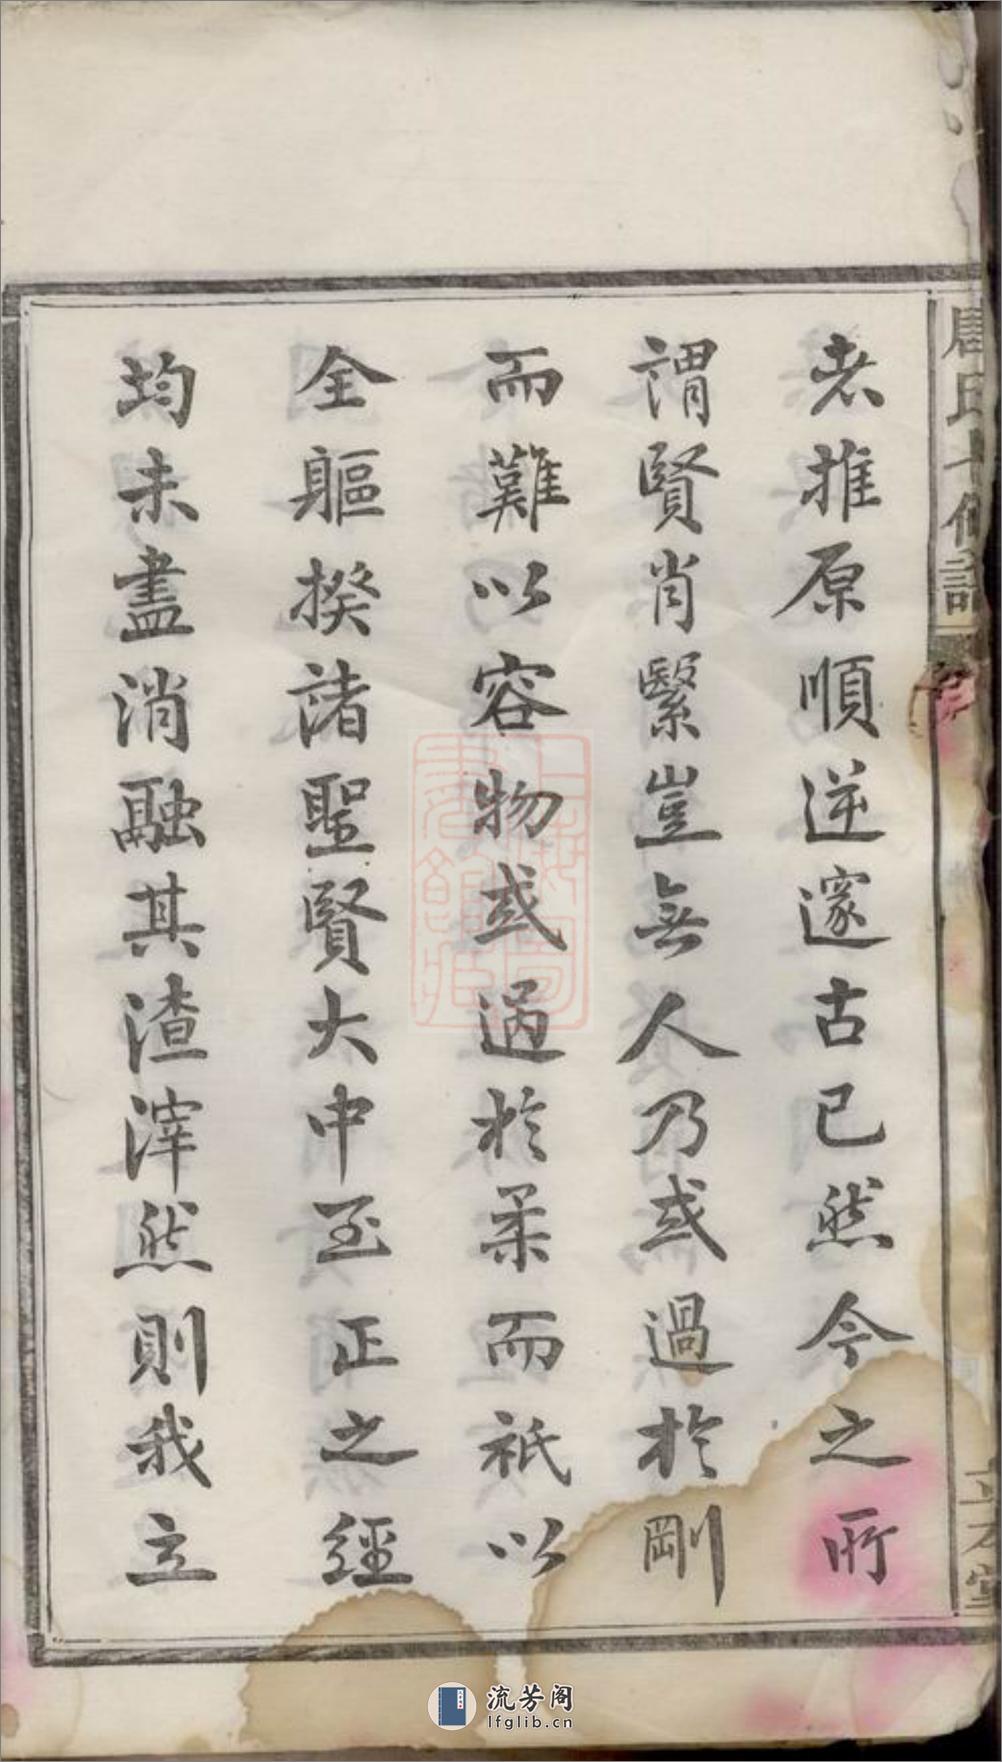 者推原順逆邃古已然今之所
謂賢肖繄豈無人乃或過於剛
而難以容物或過於柔而祇以
全軀揆諸聖賢大中至正之經
均未盡消融其渣滓然則我立
流芳阁
lfglib.cn